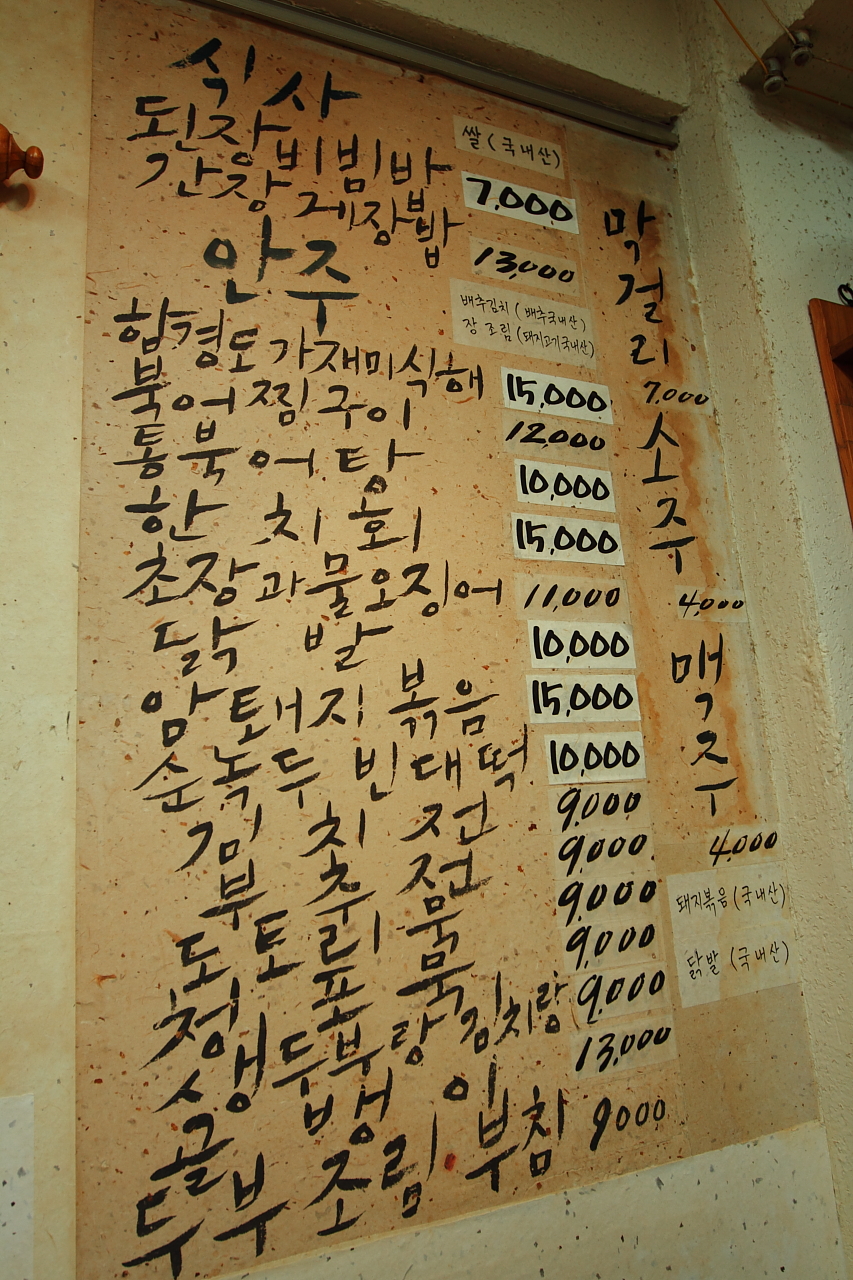 식사
쌀(국내산)
된장비빔밥 7,000
간장게장백밥 13,000
안주
배추김치(배추국내산)
장조림(돼지고기국내산)
함경도가재미식해 15,000
북어찜구이 12,000
통북어탕 10,000
한치회 15,000
초장과물오징어 11,000
닭발 10,000
암퇘지볶음 15,000
순녹두빈대떡 10,000
김치전 9,000
부추전 9,000
도토리묵 9,000
청포묵 9,000
생두부랑김치랑 9,000
골뱅이 13,000
두부조림부침 9000
막걸리
7,000
소주
4,000
맥주
4,000
돼지볶음(국내산)
닭발(국내산)